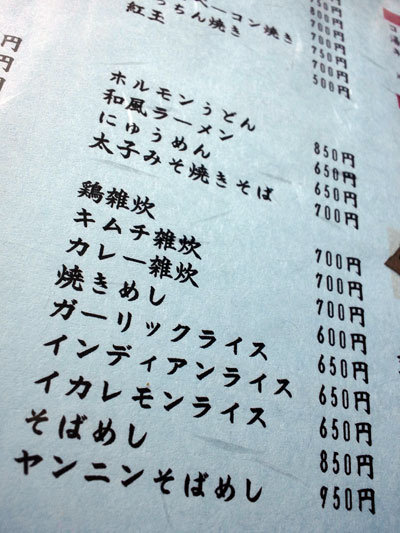 ベーコン焼き 750円
っちん焼き 700円
紅玉 500円
ホルモンうどん 850円
和風ラーメン 650円
にゅうめん 650円
太子みそ焼きそば 700円
鶏雑炊 700円
キムチ雑炊 700円
カレー雑炊 700円
焼きめし 600円
ガーリックライス 650円
インディアンライス 650円
イカレモンライス 650円
そばめし 850円
ヤンニンそばめし 950円